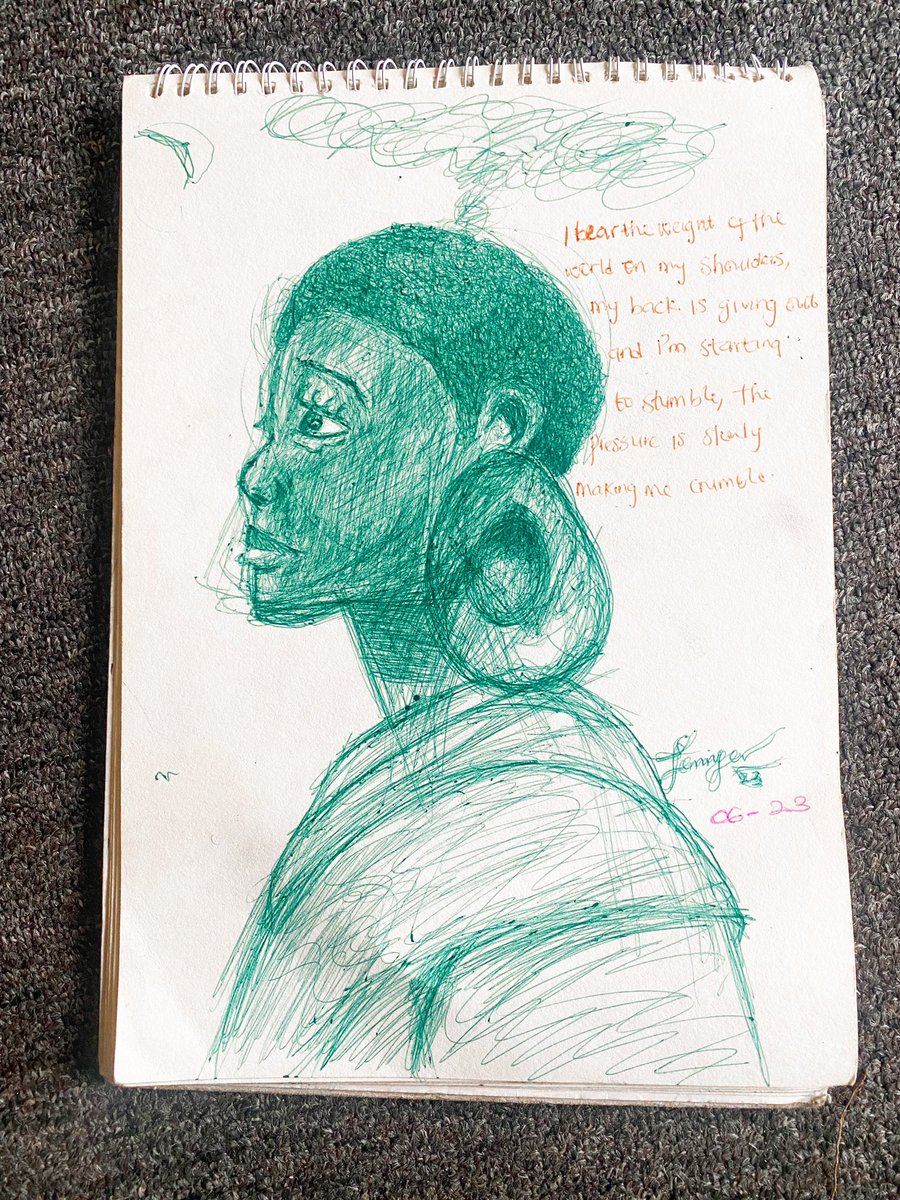 I bear the weight of the
world on my shoulders,
my back is giving out
and i'm starting
to stumble, The
pressure is slowly
making me crumble.
23
06-23